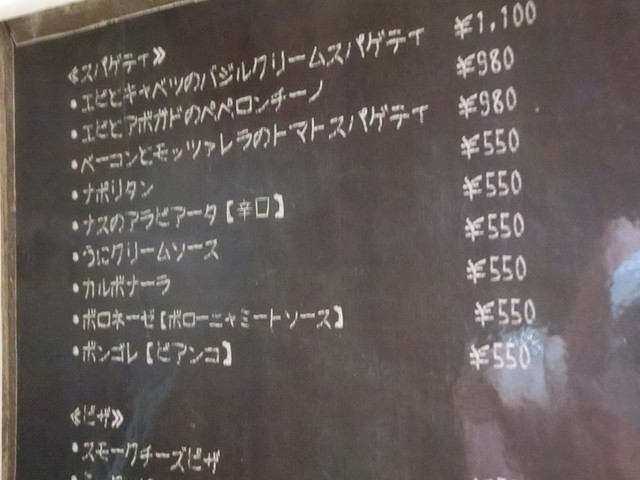 ≪スパゲティ≫
・エビとキャベツのバジルクリームスパゲティ ¥1,100
・エビとアボガドのペペロンチーノ ¥980
・ベーコンとモッツァレラのトマトスパゲティ ¥980
・ナポリタン ¥550
・ナスのアラビアータ【辛口】 ¥550
・うにクリームソース ¥550
・カルボナーラ ¥550
・ボロネーゼ【ボローニャミートソース】 ¥550
・ボンゴレ【ビアンコ】 ¥550
≪ピザ≫
・スモークチーズピザ